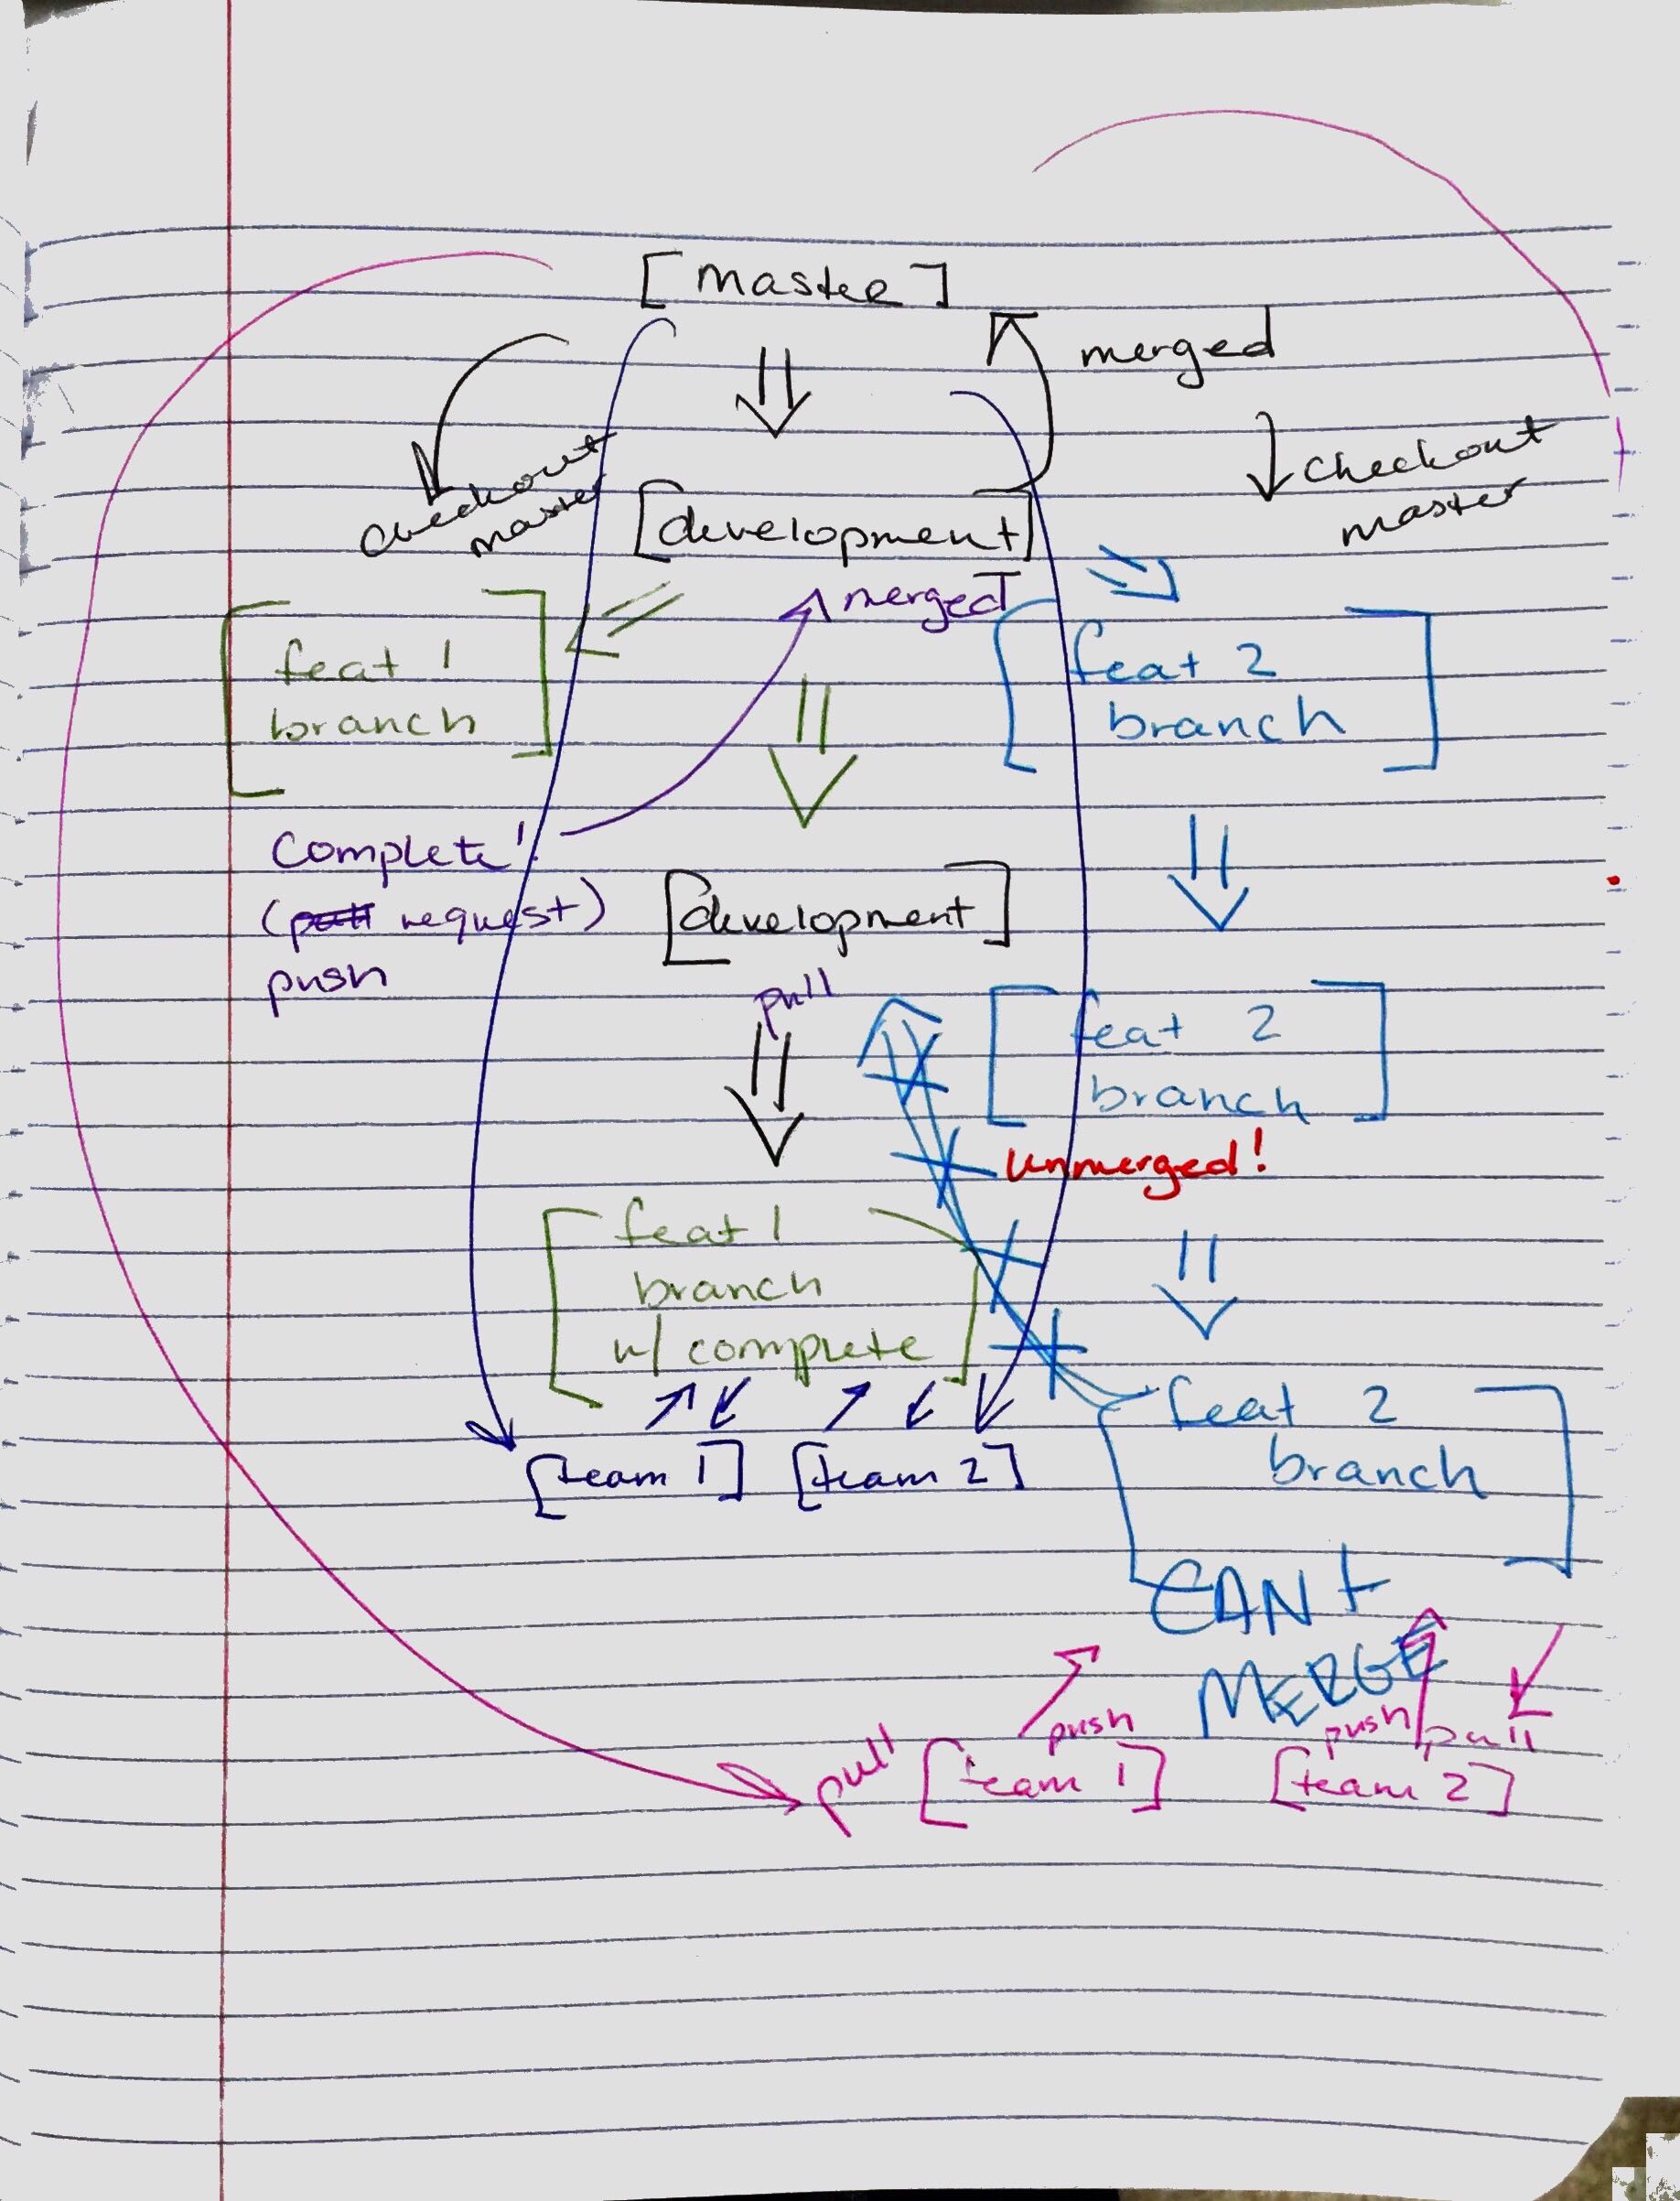 [master]
merged
checkout
master
checkout
master
[development]
merged
feat 1
branch
feat 2
branch
Complete!
(pull request)
push
[development]
pull
feat 2
branch
unmerged!
feat 1
branch
w/ complete
feat 2
branch
[team 1] [team 2]
CANt
MERGE
push
push
pull
pull
[team 1]
[team 2]